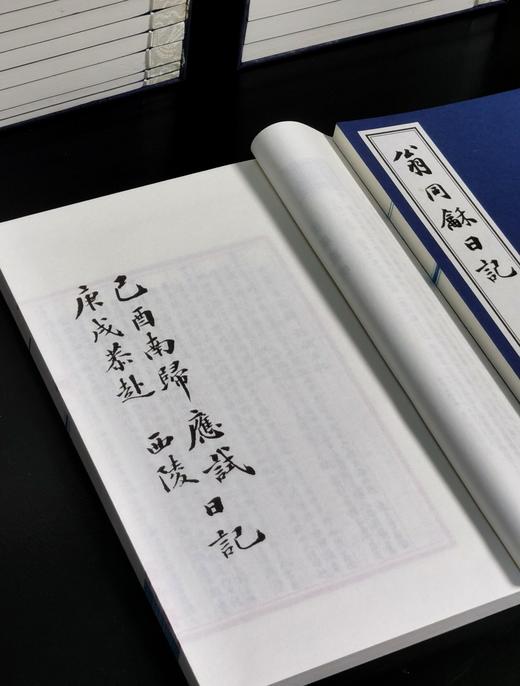 翁同龢日記
己酉南歸 應試日記
庚戌恭赴 西陵